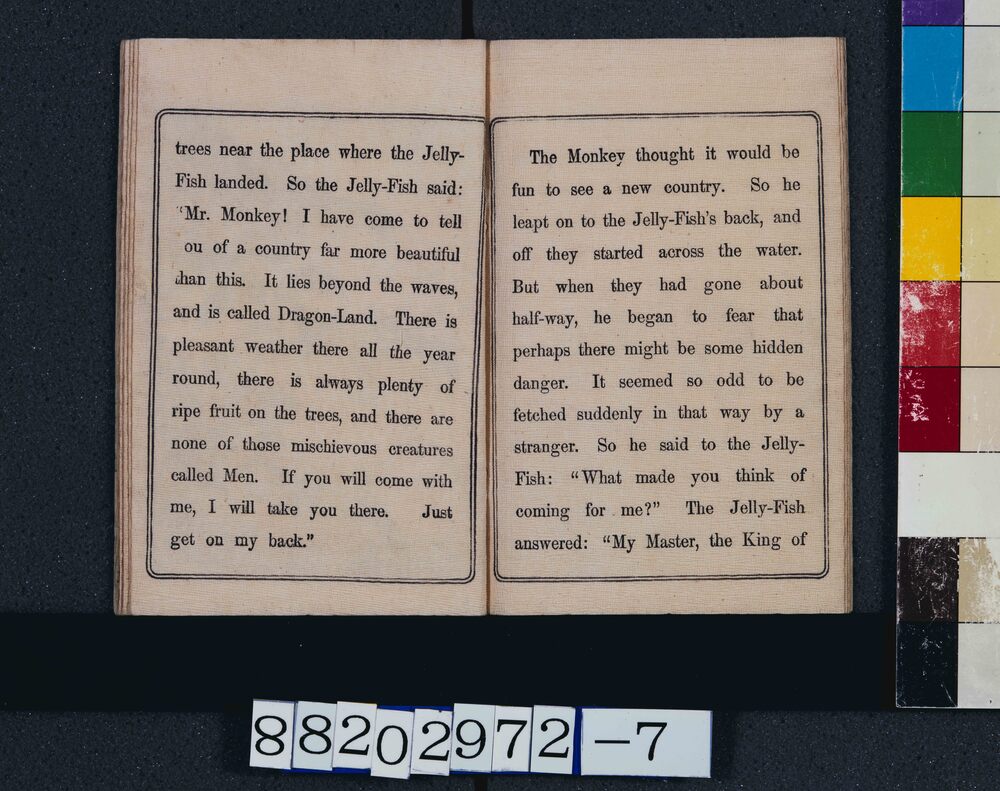 trees near the place where the Jelly-
Fish landed. So the Jelly-Fish said:
“Mr. Monkey! I have come to tell
ou of a country far more beautiful
than this. It lies beyond the waves,
and is called Dragon-Land. There is
pleasant weather there all the year
round, there is always plenty of
ripe fruit on the trees, and there are
none of those mischievous creatures
called Men. If you will come with
me, I will take you there. Just
get on my back.”
The Monkey thought it would be
fun to see a new country. So he
leapt on to the Jelly-Fish's back, and
off they started across the water.
But when they had gone about
half-way, he began to fear that
perhaps there might be some hidden
danger. It seemed so odd to be
fetched suddenly in that way by a
stranger. So he said to the Jelly-
Fish: “What made you think of
coming for me?” The Jelly-Fish
answered: “My Master, the King of
88202972-7